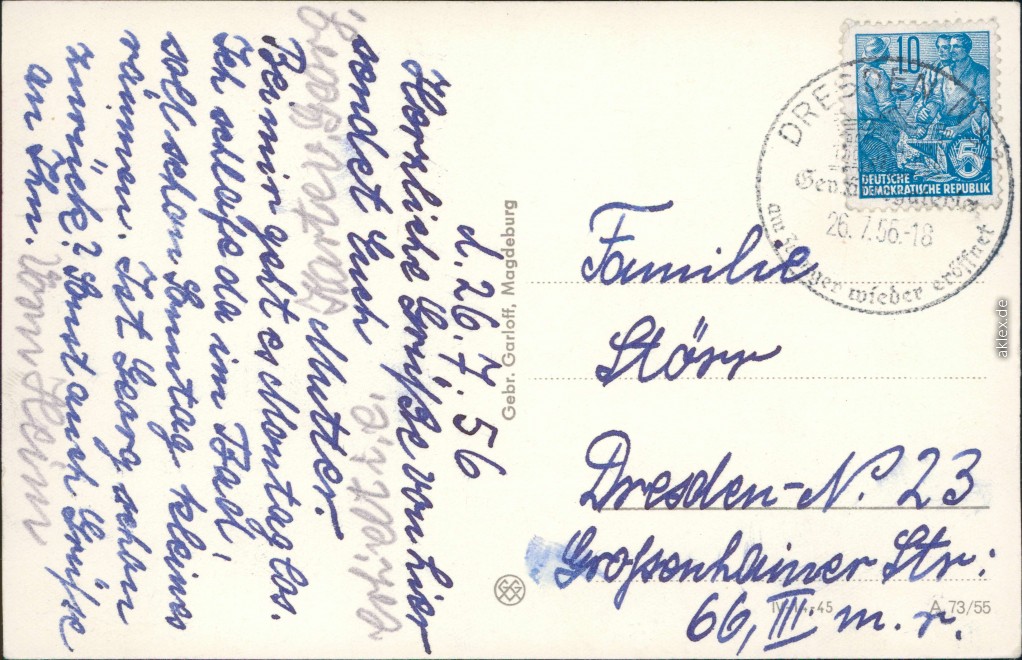 d. 26. 7. 56
Herzliche Grüße von hier
sendet Euch
Mutter.
Bei mir geht es Montag los.
Ich schlafe da im Bad,
soll schon Sonntag kleines
räumen. Ist Georg schon
zurück? Sonst auch Grüße
an Ihm.
Gebr. Garloff, Magdeburg
10
DEUTSCHE
DEMOKRATISCHE REPUBLIK
5
DRESDEN
26. 7. 56.-18
wieder eröffnet
Familie
Störr
Dresden-N. 23
Großenhainer Str.
66, III m. r.
A 73/55
aklex.de